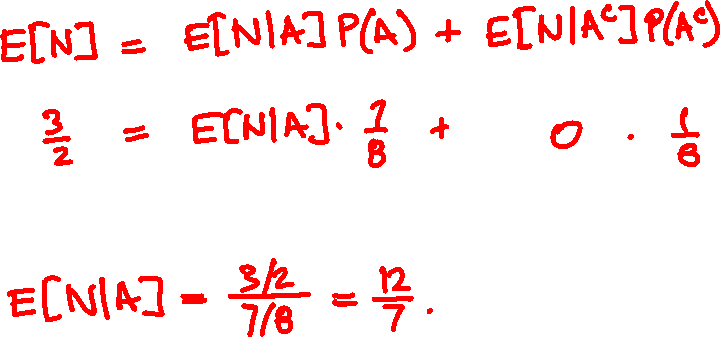 E[N] = E[N|A] P(A) + E[N|Aᶜ] P(Aᶜ)
3/2 = E[N|A] · 7/8 + 0 · 1/8
E[N|A] = (3/2)/(7/8) = 12/7.